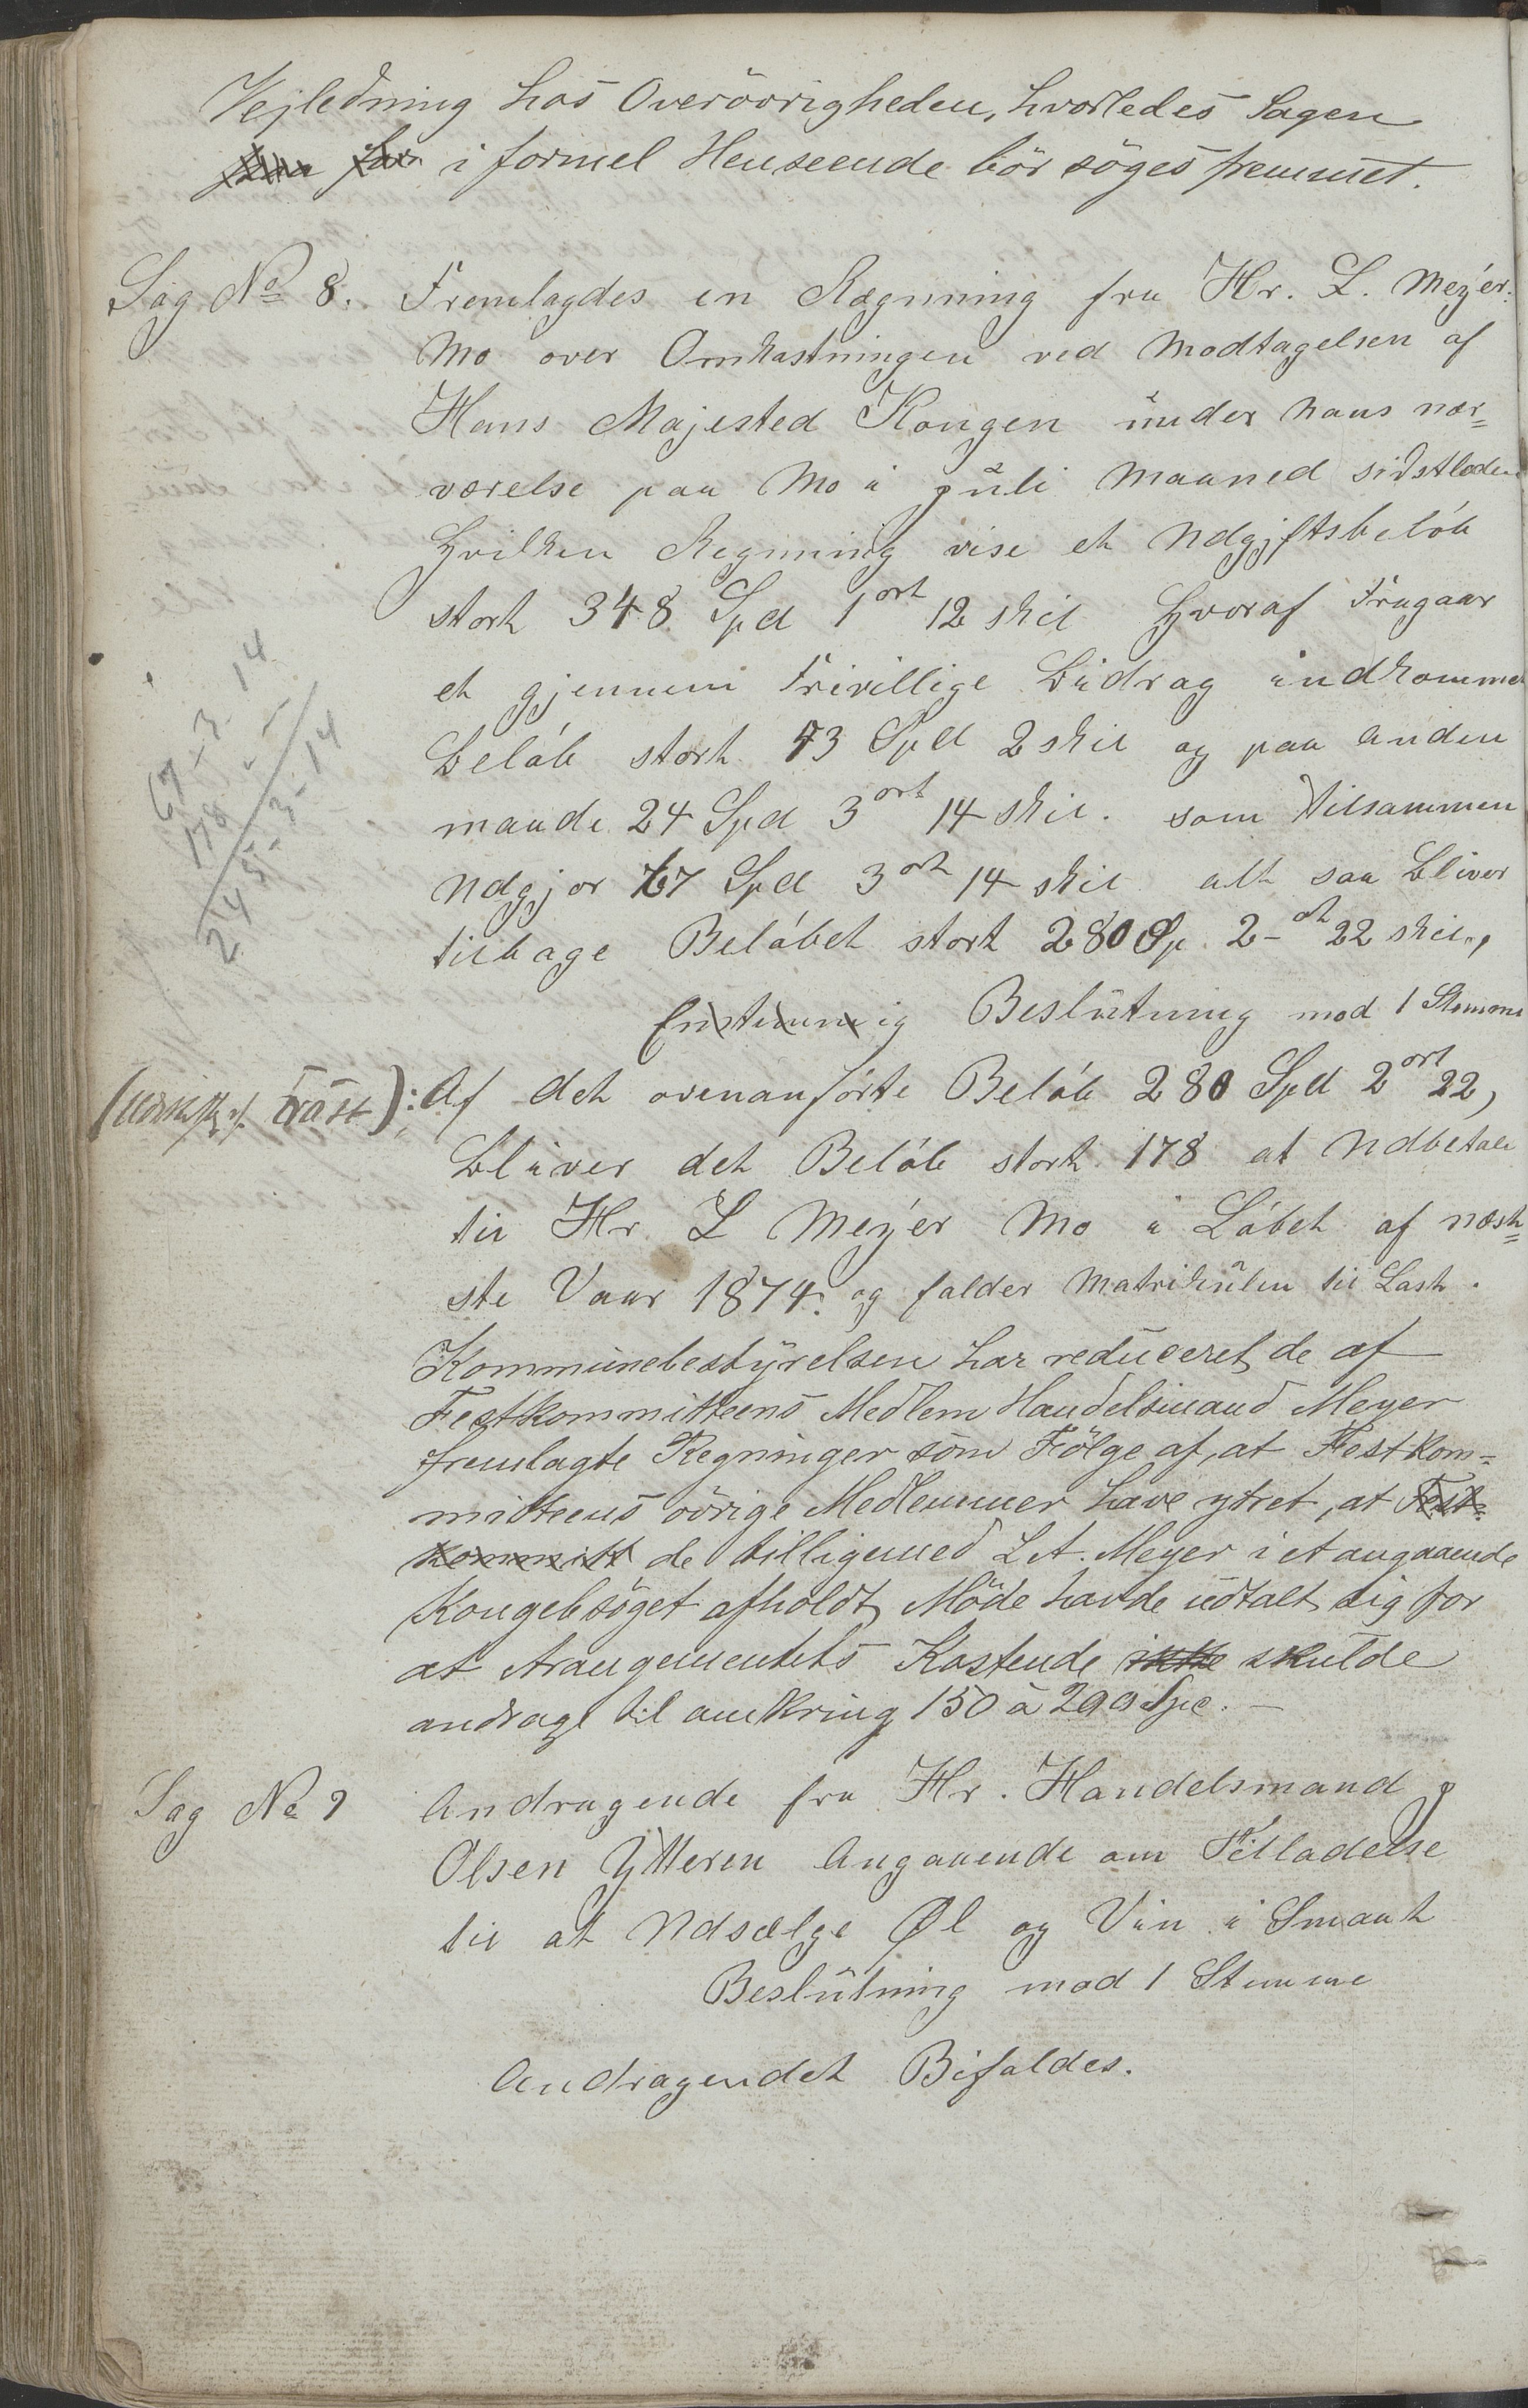 Vejledning hos Overövrigheden, hvorledes Sagen
i formel Henseende bör söges fremmet.
Sag No 8. Fremlagdes en Rægnning fra Hr. L. Meÿer.
Mo over Omkastningen ved Modtagelsen af
Hans Majested Kongen ŭnder hans nær=
værelse paa Mo i Jŭli Maaned sidstleden
Hvilken Regnning vise et Udgiftsbelöb
stort 348 Spd 1 ort 12 skil Hvoraf Fragaar
et gjennem Frivillige Bidrag indkommet
Belöb stort 43 Spd 2 skil og paa anden
maade 24 Spd 3 ort 14 skil. som tilsammen
Udgjor 67 Spd 3 ort 14 skil alt saa bliver
tilbage Belöbet stort 280 Sp. 2 - ort 22 skil.,
67 - 3 - 14
178 - " - "
245 - 3 - 14
Enstemmig Beslŭtning mod 1 Stemme
Af det ovenanförte Belöb 280 Spd 2 ort 22,
bliver det Belöb stort 178 at Udbetale
til Hr L Meÿer Mo i Löbet af næst=
ste Vaar 1874. og falder Matrikŭlen til Last.
Kommŭnebestyrelsen har redŭceret de af
Festkommitteens Medlem Handelsmand Meyer
fremlagte Regninger som Fölge af, at Festkom-
mitteens övrige Medlemmer have ytret, at Fest-
kommitt de tilligemed L A. Meyer i et angaaende
Kongebsöget afholdt Möde havde ŭdtalt sig for
at Arangementets Kostende ikke skulde
andrage til omkring 150 à 200 Spd. -
Sag No 9 Andragende fra Hr. Handelsmand J
Olsen Ytteren Angaaende om Tilladelse
til at Udsælge Øl og Vin i Smaat
Beslŭtning mod 1 Stemme
Andragendet Bifaldes.